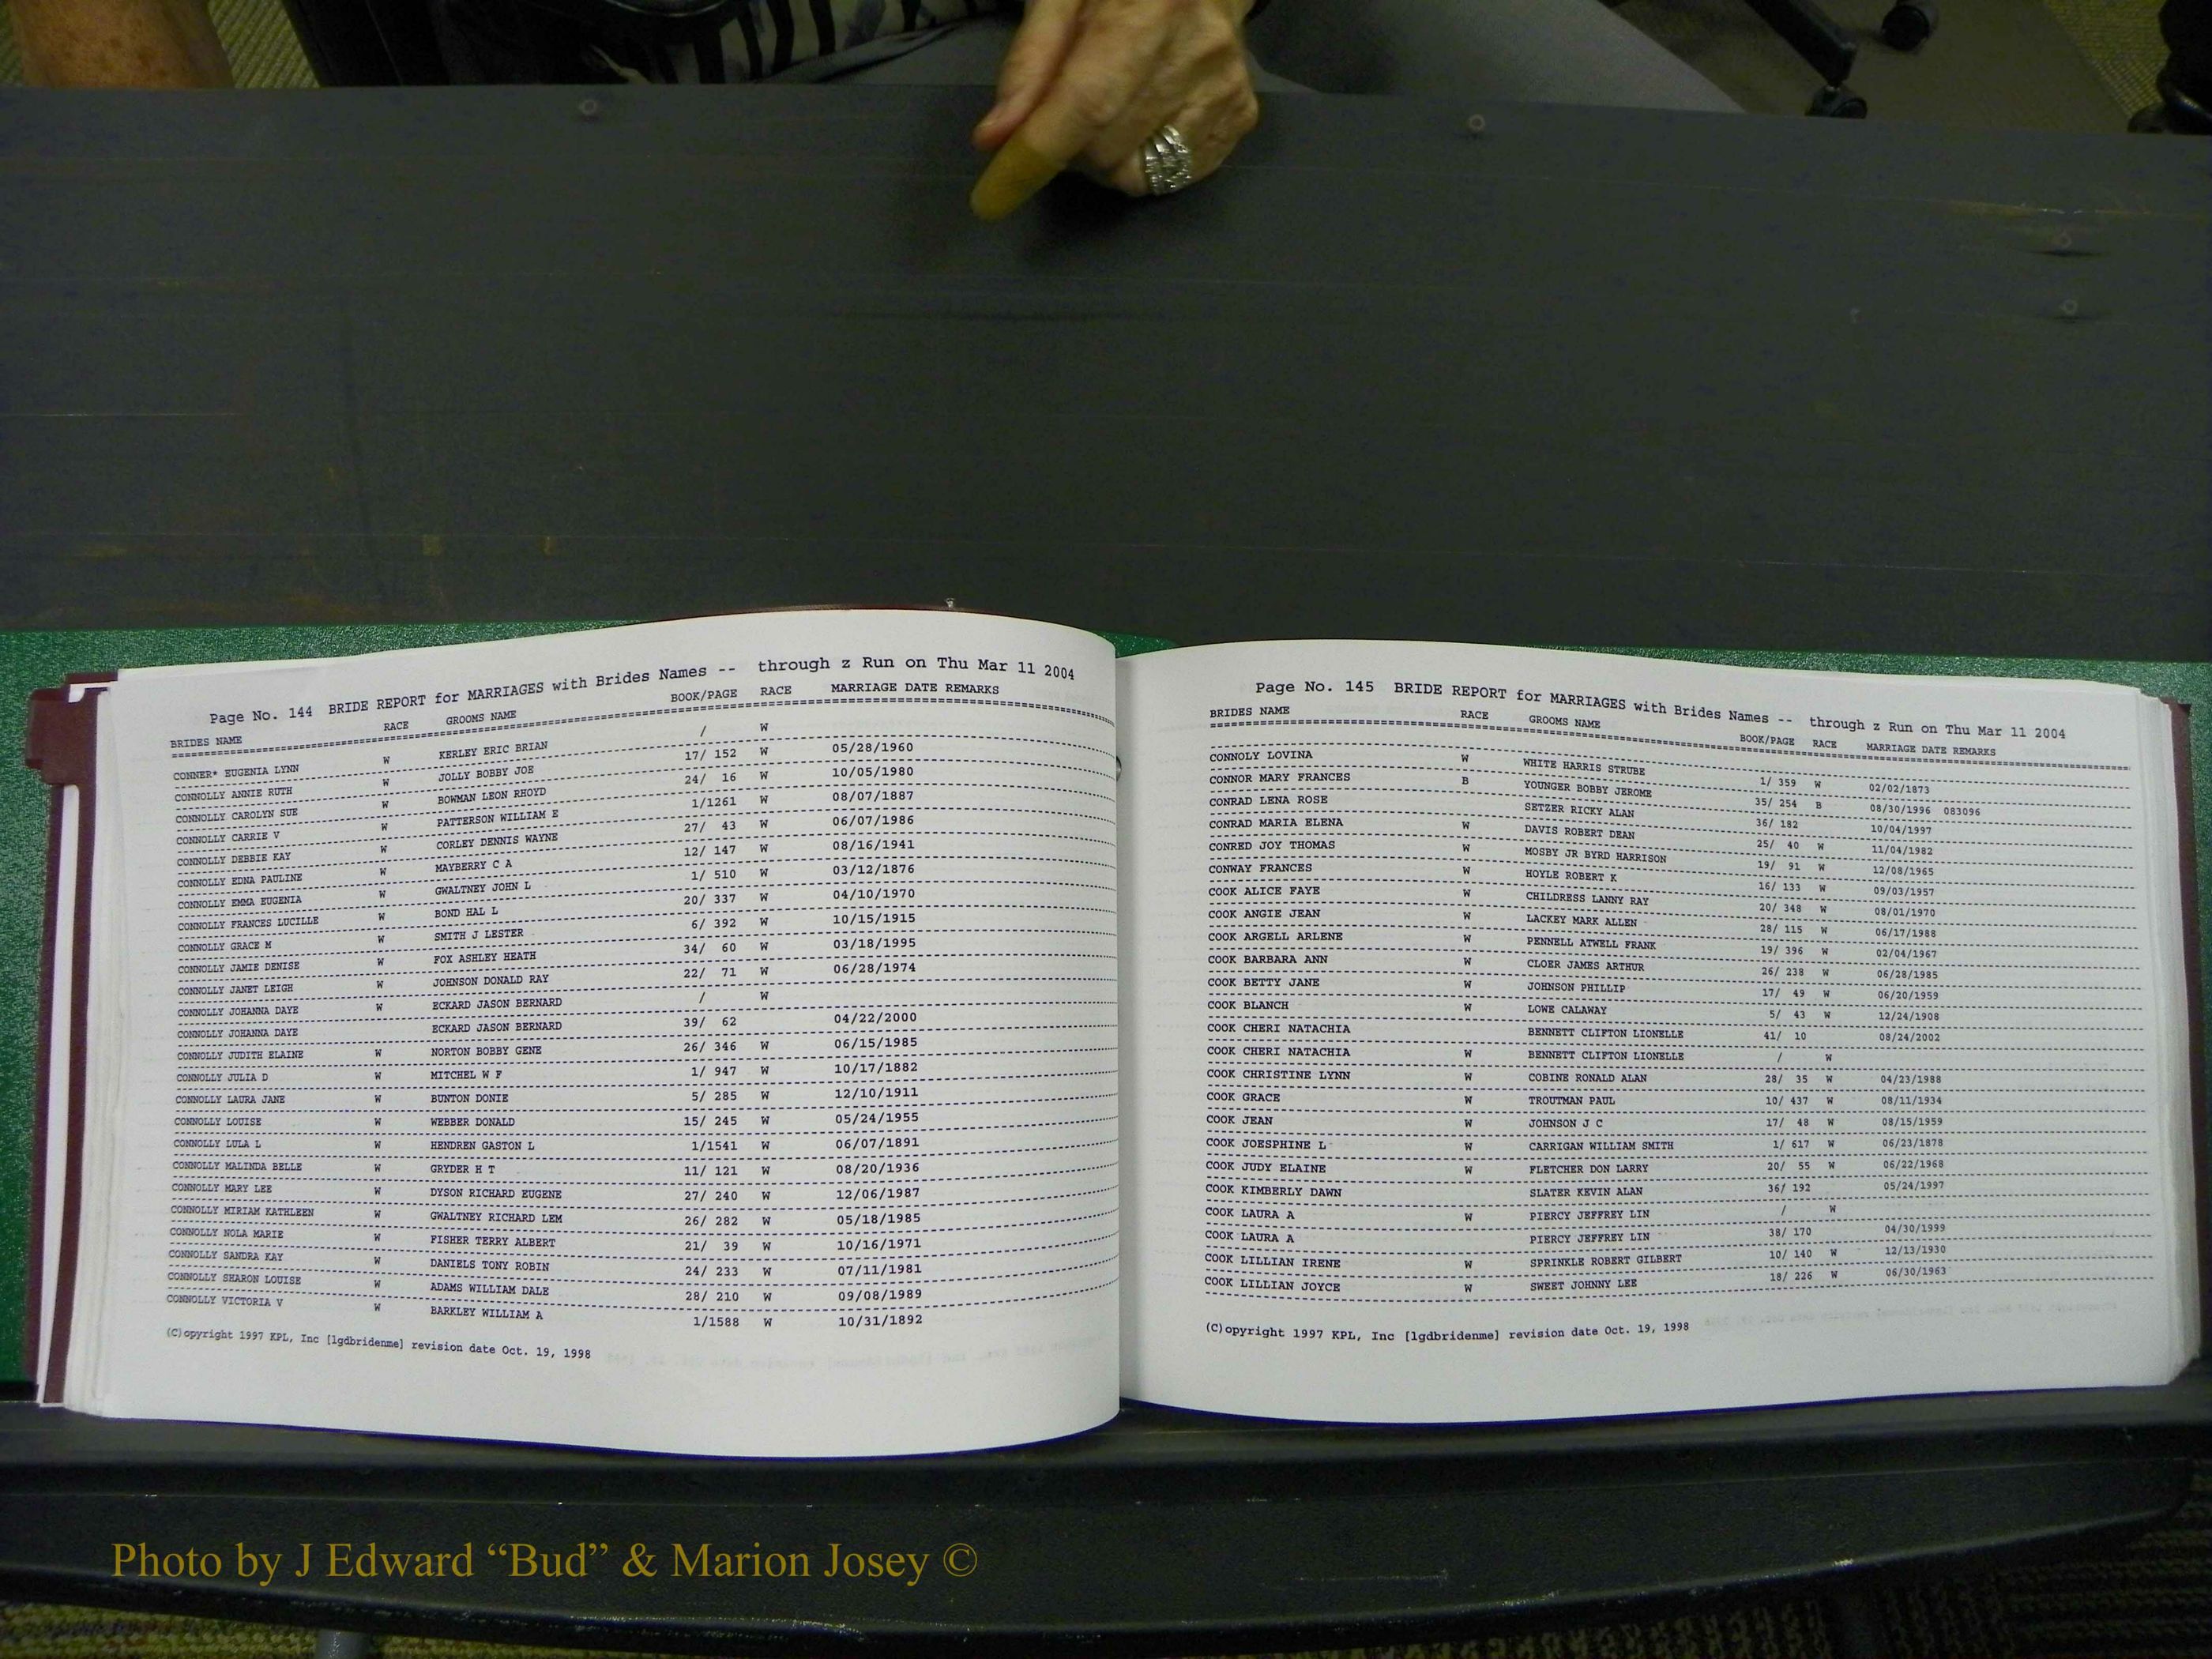 Page No. 144 BRIDE REPORT for MARRIAGES with Brides Names -- through z Run on Thu Mar 11 2004
BRIDES NAME RACE GROOMS NAME BOOK/PAGE RACE MARRIAGE DATE REMARKS
CONNER* EUGENIA LYNN W KERLEY ERIC BRIAN / W
CONNOLLY ANNIE RUTH W JOLLY BOBBY JOE 17/ 152 W 05/28/1960
CONNOLLY CAROLYN SUE W BOWMAN LEON RHOYD 24/ 16 W 10/05/1980
CONNOLLY CARRIE V W PATTERSON WILLIAM E 1/1261 W 08/07/1887
CONNOLLY DEBBIE KAY W CORLEY DENNIS WAYNE 27/ 43 W 06/07/1986
CONNOLLY EDNA PAULINE W MAYBERRY C A 12/ 147 W 08/16/1941
CONNOLLY EMMA EUGENIA W GWALTNEY JOHN L 1/ 510 W 03/12/1876
CONNOLLY FRANCES LUCILLE W BOND HAL L 20/ 337 W 04/10/1970
CONNOLLY GRACE M W SMITH J LESTER 6/ 392 W 10/15/1915
CONNOLLY JAMIE DENISE W FOX ASHLEY HEATH 34/ 60 W 03/18/1995
CONNOLLY JANET LEIGH W JOHNSON DONALD RAY 22/ 71 W 06/28/1974
CONNOLLY JOHANNA DAYE W ECKARD JASON BERNARD / W
CONNOLLY JOHANNA DAYE ECKARD JASON BERNARD 39/ 62 04/22/2000
CONNOLLY JUDITH ELAINE W NORTON BOBBY GENE 26/ 346 W 06/15/1985
CONNOLLY JULIA D W MITCHEL W F 1/ 947 W 10/17/1882
CONNOLLY LAURA JANE W BUNTON DONIE 5/ 285 W 12/10/1911
CONNOLLY LOUISE W WEBBER DONALD 15/ 245 W 05/24/1955
CONNOLLY LULA L W HENDREN GASTON L 1/1541 W 06/07/1891
CONNOLLY MALINDA BELLE W GRYDER H T 11/ 121 W 08/20/1936
CONNOLLY MARY LEE W DYSON RICHARD EUGENE 27/ 240 W 12/06/1987
CONNOLLY MIRIAM KATHLEEN W GWALTNEY RICHARD LEM 26/ 282 W 05/18/1985
CONNOLLY NOLA MARIE W FISHER TERRY ALBERT 21/ 39 W 10/16/1971
CONNOLLY SANDRA KAY W DANIELS TONY ROBIN 24/ 233 W 07/11/1981
CONNOLLY SHARON LOUISE W ADAMS WILLIAM DALE 28/ 210 W 09/08/1989
CONNOLLY VICTORIA V W BARKLEY WILLIAM A 1/1588 W 10/31/1892
(C)opyright 1997 KPL, Inc [lgdbridenme] revision date Oct. 19, 1998
Page No. 145 BRIDE REPORT for MARRIAGES with Brides Names -- through z Run on Thu Mar 11 2004
BRIDES NAME RACE GROOMS NAME BOOK/PAGE RACE MARRIAGE DATE REMARKS
CONNOLY LOVINA W WHITE HARRIS STRUBE 1/ 359 W 02/02/1873
CONNOR MARY FRANCES B YOUNGER BOBBY JEROME 35/ 254 B 08/30/1996 083096
CONRAD LENA ROSE SETZER RICKY ALAN 36/ 182 10/04/1997
CONRAD MARIA ELENA W DAVIS ROBERT DEAN 25/ 40 W 11/04/1982
CONRED JOY THOMAS W MOSBY JR BYRD HARRISON 19/ 91 W 12/08/1965
CONWAY FRANCES W HOYLE ROBERT K 16/ 133 W 09/03/1957
COOK ALICE FAYE W CHILDRESS LANNY RAY 20/ 348 W 08/01/1970
COOK ANGIE JEAN W LACKEY MARK ALLEN 28/ 115 W 06/17/1988
COOK ARGELL ARLENE W PENNELL ATWELL FRANK 19/ 396 W 02/04/1967
COOK BARBARA ANN W CLOER JAMES ARTHUR 26/ 238 W 06/28/1985
COOK BETTY JANE W JOHNSON PHILLIP 17/ 49 W 06/20/1959
COOK BLANCH W LOWE CALAWAY 5/ 43 W 12/24/1908
COOK CHERI NATACHIA BENNETT CLIFTON LIONELLE 41/ 10 08/24/2002
COOK CHERI NATACHIA W BENNETT CLIFTON LIONELLE / W
COOK CHRISTINE LYNN W COBINE RONALD ALAN 28/ 35 W 04/23/1988
COOK GRACE W TROUTMAN PAUL 10/ 437 W 08/11/1934
COOK JEAN W JOHNSON J C 17/ 48 W 08/15/1959
COOK JOESPHINE L W CARRIGAN WILLIAM SMITH 1/ 617 W 06/23/1878
COOK JUDY ELAINE W FLETCHER DON LARRY 20/ 55 W 06/22/1968
COOK KIMBERLY DAWN SLATER KEVIN ALAN 36/ 192 05/24/1997
COOK LAURA A W PIERCY JEFFREY LIN / W
COOK LAURA A PIERCY JEFFREY LIN 38/ 170 04/30/1999
COOK LILLIAN IRENE W SPRINKLE ROBERT GILBERT 10/ 140 W 12/13/1930
COOK LILLIAN JOYCE W SWEET JOHNNY LEE 18/ 226 W 06/30/1963
(C)opyright 1997 KPL, Inc [lgdbridenme] revision date Oct. 19, 1998
Photo by J Edward “Bud” & Marion Josey ©